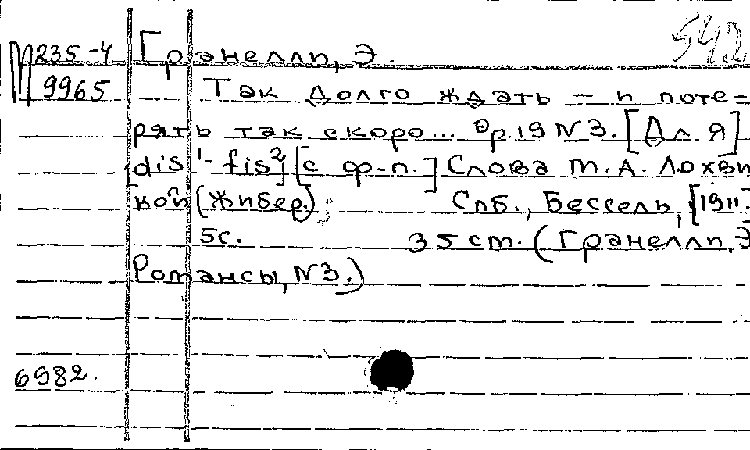 М235-4 Гранелли, Э. 542
9965 Так долго ждать – и поте=
рять так скоро... Op.19 N3. [Для Я]
[dis¹- fis²] [с ф-п.] Слова М.А. Лохви
кой (Жибер.) Спб., Бессель, [1911.
5с. 35 cm. (Гранелли, Э
Романсы, N3.)
6982.